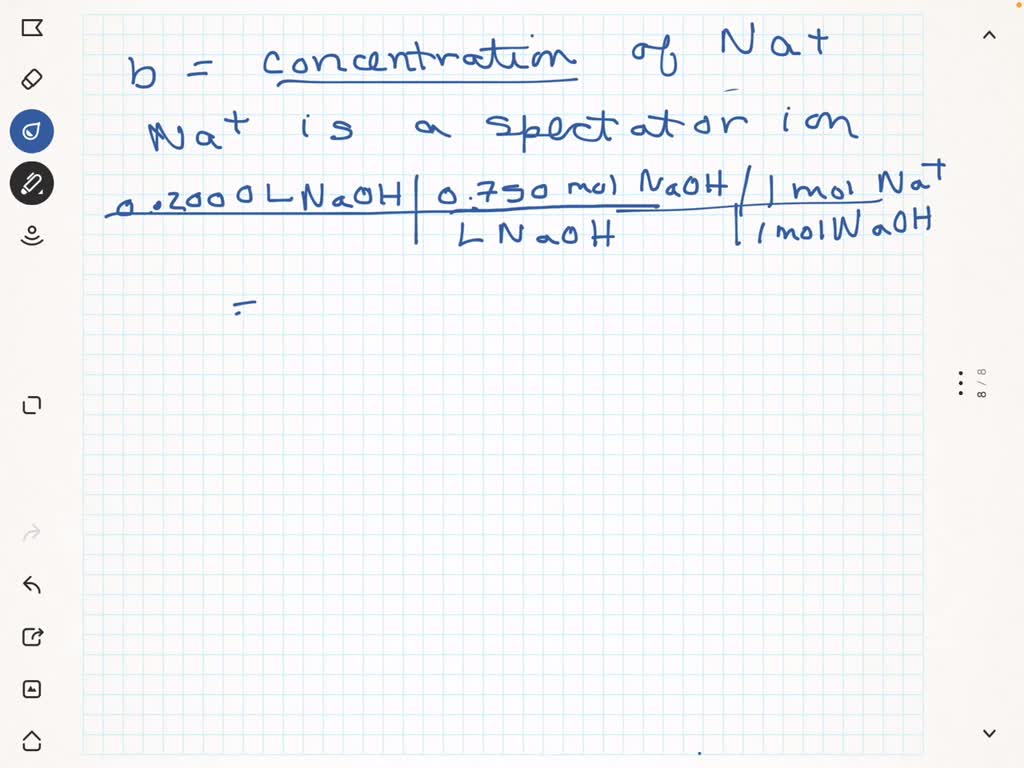 b = concentration of Na+
Na+ is a spectator ion
0.2000 L NaOH | 0.750 mol NaOH | 1 mol Na+
L NaOH | 1 mol NaOH
=
8 / 8